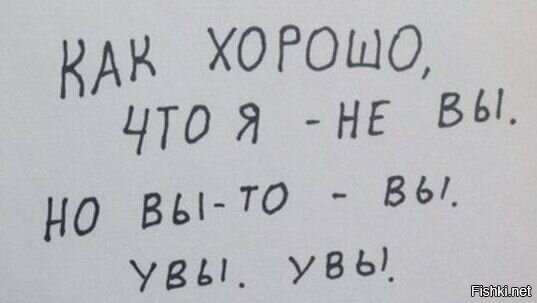 КАК ХОРОШО,
ЧТО Я - НЕ ВЫ.
НО ВЫ-ТО - ВЫ.
УВЫ. УВЫ.
Fishki.net